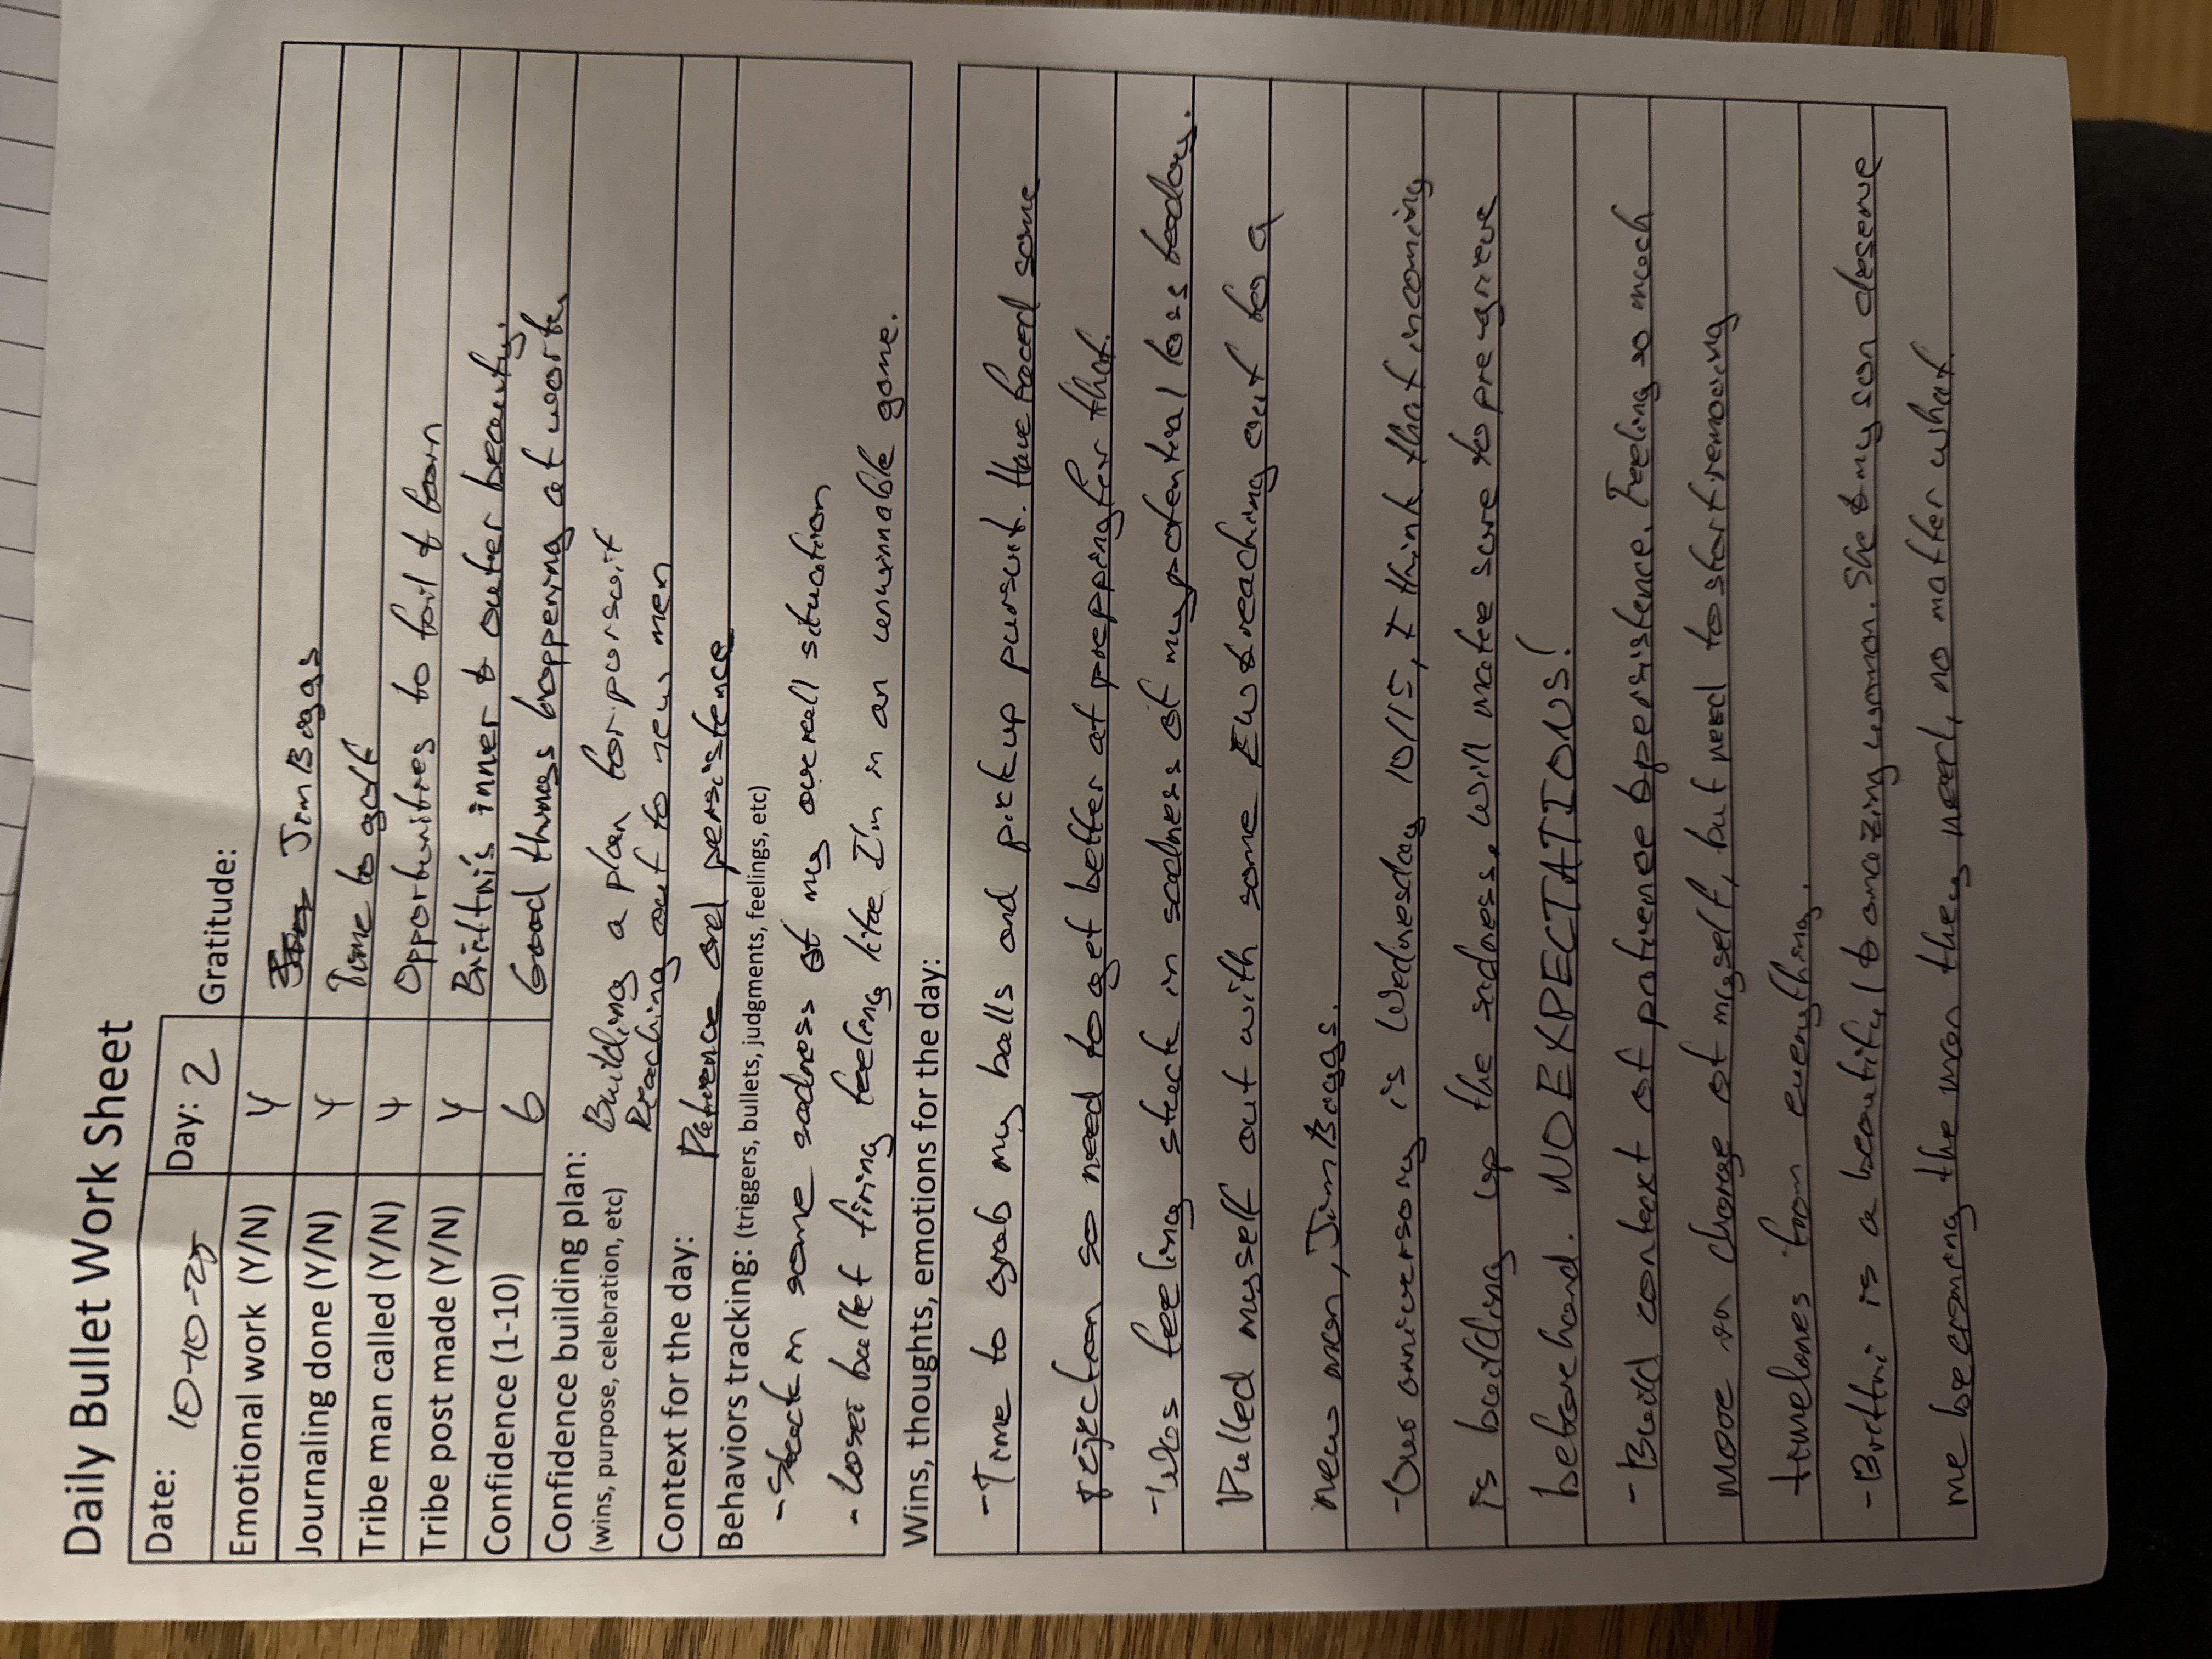 Daily Bullet Work Sheet
Date: 10-10-25 Day: 2 Gratitude:
Emotional work (Y/N) Y Jim Boggs
Journaling done (Y/N) Y Time to golf
Tribe man called (Y/N) Y Opportunities to fail & learn
Tribe post made (Y/N) Y Brittni's inner & outer beauty.
Confidence (1-10) 6 Good things happening at work
Confidence building plan: Building a plan for pursuit
(wins, purpose, celebration, etc) Reaching out to new men
Context for the day: Patience and persistence
Behaviors tracking: (triggers, bullets, judgments, feelings, etc)
- Stuck in some sadness of my overall situation
- Loser bullet firing feeling like I'm in an unwinnable game.
Wins, thoughts, emotions for the day:
- Time to grab my balls and pickup pursuit. Have faced some
rejection so need to get better at prepping for that.
- Was feeling stuck in sadness of my potential loss today.
Pulled myself out with some EW & reaching out to a
new man, Jim Boggs.
- Our anniversary is Wednesday 10/15, I think that incoming
is building up the sadness. Will make sure to pre-grieve
beforehand. NO EXPECTATIONS!
- Build context of patience & persistence. Feeling so much
more in charge of myself, but need to start removing
timelines from everything.
- Brittni is a beautiful & amazing woman. She & my son deserve
me becoming the man they need, no matter what